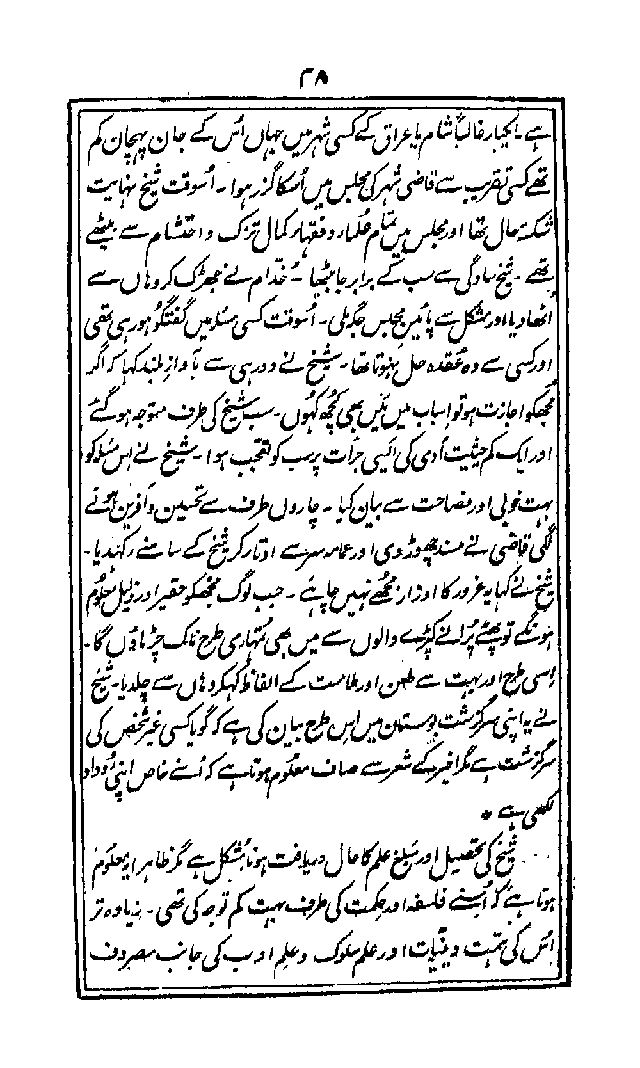 ۳۸
ہے ۔ ایکبار غالباً شام یا عراق کے کسی شہر میں جہاں اُس کے جان پہچان کم
تھے کسی تقریب سے قاضیِ شہر کی مجلس میں اُسکا گزر ہوا ۔ اُسوقت شیخ نہایت
شکستہ حال تھا اور مجلس میں تمام علماء و فقہاء کمال تزک و احتشام سے بیٹھے
تھے ۔ شیخ سادگی سے سب کے برابر جا بیٹھا ۔ خُدّام نے جھڑک کر وہاں سے
اُٹھا دیا اور مشکل سے پائینِ مجلس جگہ ملی ۔ اُسوقت کسی مسئلہ میں گفتگو ہو رہی تھی
اور کسی سے وہ عُقدہ حل نہوتا تھا ۔ شیخ نے دور ہی سے بآوازِ بلند کہا کہ اگر
مجھکو اجازت ہو تو اس باب میں مَیں بھی کچھ کہوں ۔ سب شیخ کی طرف متوجہ ہو گئے
اور ایک کم حیثیت آدمی کی ایسی جرأت پر سب کو تعجب ہوا ۔ شیخ نے اس مسئلہ کو
بہت خوبی اور فصاحت سے بیان کیا ۔ چاروں طرف سے تحسین و آفریں ہونے
لگی قاضی نے مسند چھوڑ دی اور عمامہ سر سے اوتار کر شیخ کے سامنے رکھدیا ۔
شیخ نے کہا یہ غرور کا اوزار مجھے نہیں چاہئے ۔ جب لوگ مجھکو حقیر اور ذلیل معلوم
ہونگے تو پھٹے پُرانے کپڑے والوں سے میں بھی تمہاری طرح ناک چڑھاؤں گا ۔
اِسی طرح اور بہت سے طعن اور ملامت کے الفاظ کہکر وہاں سے چلدیا ۔ شیخ
نے یہ اپنی سرگزشت بوستان میں اس طرح بیان کی ہے کہ گویا کسی غیر شخص کی
سرگزشت ہے مگر اخیر کے شعر سے صاف معلوم ہوتا ہے کہ اُسنے خاص اپنی رُوداد
لکھی ہے *
شیخ کی تحصیل اور مبلغِ علم کا حال دریافت ہونا مُشکل ہے مگر ظاہراً یہ معلوم
ہوتا ہے کہ اُسنے فلسفہ اور حکمت کی طرف بہت کم توجہ کی تھی ۔ زیادہ تر
اُس کی ہمت دینیّات اور علمِ سلوک و علمِ ادب کی جانب مصروف